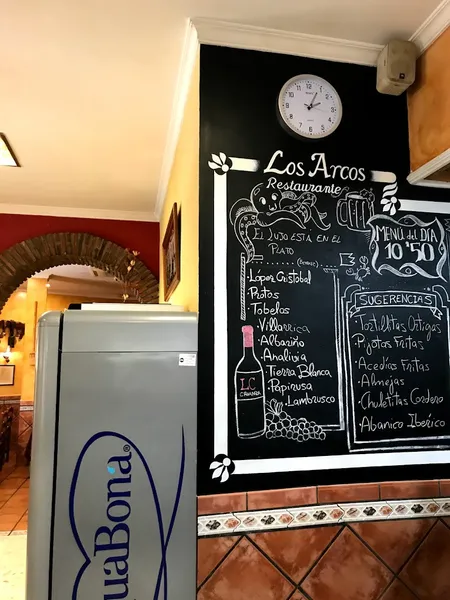 Los Arcos
Restaurante
El LUJO ESTA EN EL
PLATO
MENÚ del DÍA
10'50
López Cristobal
Protos
Tobelos
Villarrica
Albariño
Analivia
Tierra Blanca
Papirusa
Lambrusco
L.C
CRIANZA
SUGERENCIAS
Tortillitas Ortigas
Pijotas Fritas
Acedías Fritas
Almejas
Chuletitas Cordero
Abanico Ibérico
uaBona